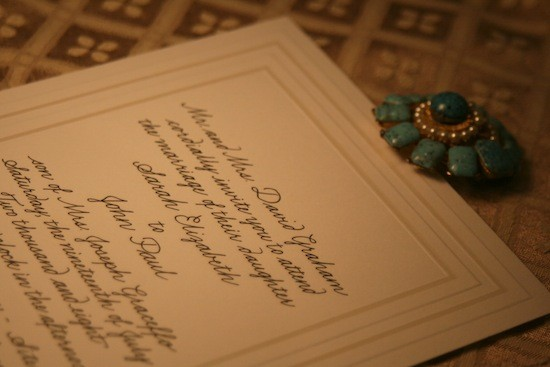 Mr. and Mrs. David Graham
cordially invite you to attend
the marriage of their daughter
Sarah Elizabeth
to
John Paul
son of Mrs. Joseph Graceffo
Saturday, the nineteenth of July
Two thousand and eight
o'clock in the afternoon